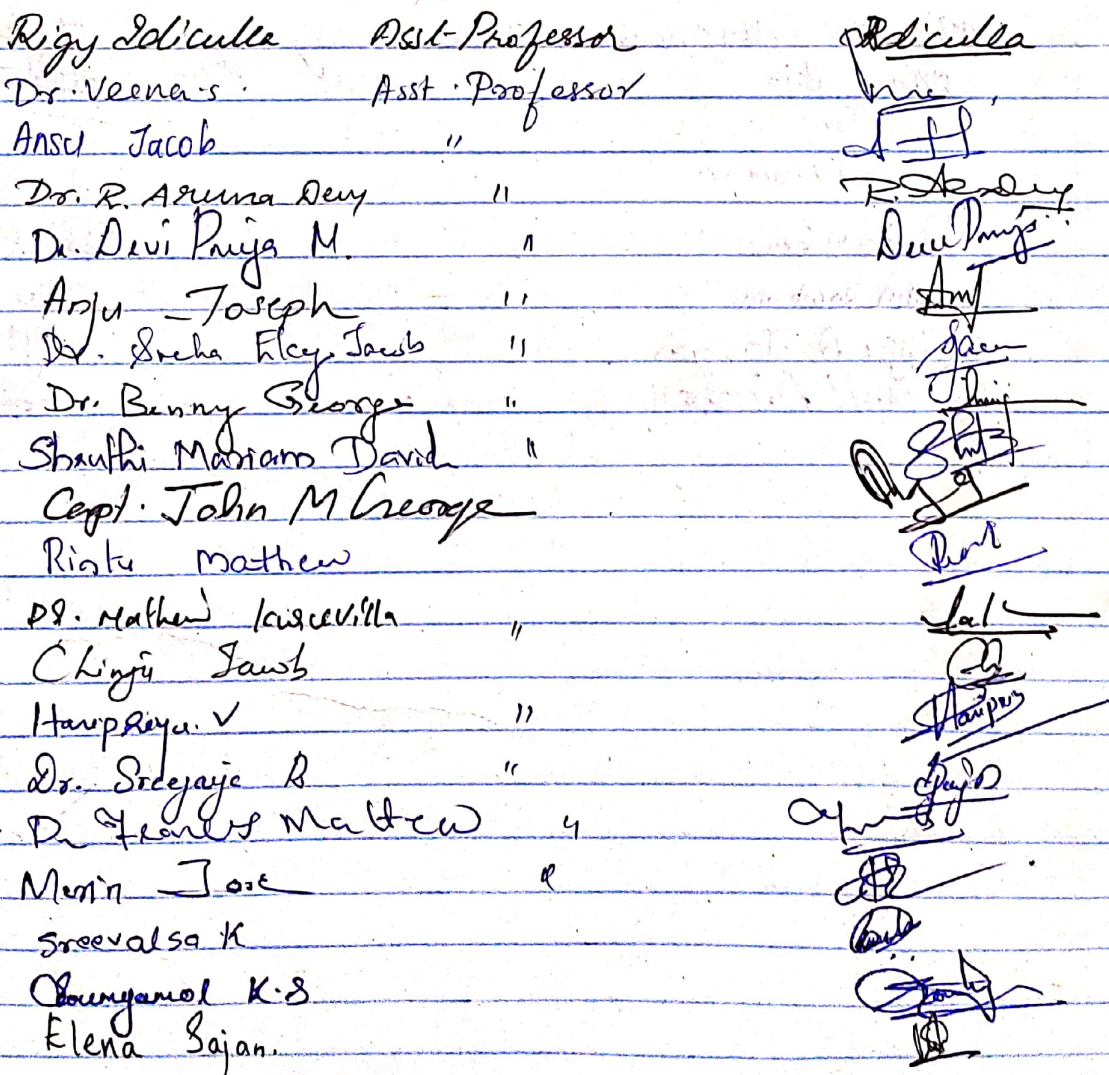 Rigy Idiculla Asst-Professor RIdiculla
Dr. Veena.s. Asst. Professor
Ansu Jacob "
Dr. R. Aruna Devy "
Dr. Devi Priya M. " Devi Priya
Anju Joseph " Anj
Dr. Sneha Elcy Jacob "
Dr. Benny George "
Shruthi Mariam David "
Capt. John M George
Rintu Mathew
Dr. Mathew Kuruvilla "
Chinju Jacob
Haripriya. V " Haripriy
Dr. Sreejaya R "
Dr Francis Mathew "
Merin Jose "
Sreevalsa K
Soumyamol K.S
Elena Sajan.